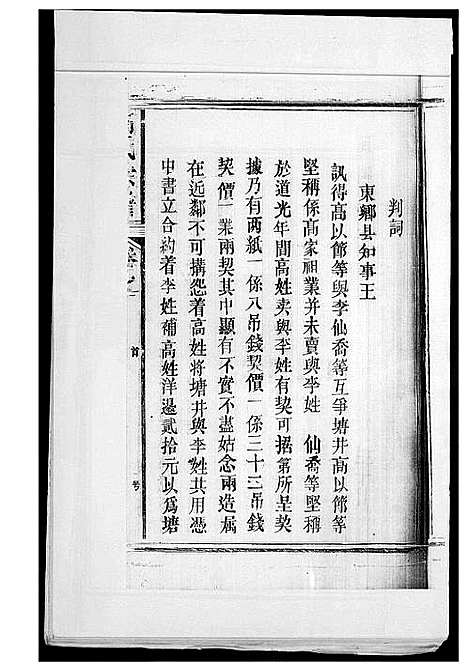 判詞
東鄉县知事王
訊得高以節等與李仙喬等互爭塘井高以節等
堅稱係高家祖業并未賣與李姓 仙喬等堅稱
於道光年間高姓卖與李姓有契可據第所呈契
據乃有两紙一係八吊錢契價一係三十三吊錢
契價一業兩契其中顯有不實不盡姑念兩造属
在近鄰不可搆怨着高姓将塘井與李姓共用憑
中書立合約着李姓補高姓洋邊貳拾元以爲塘
首